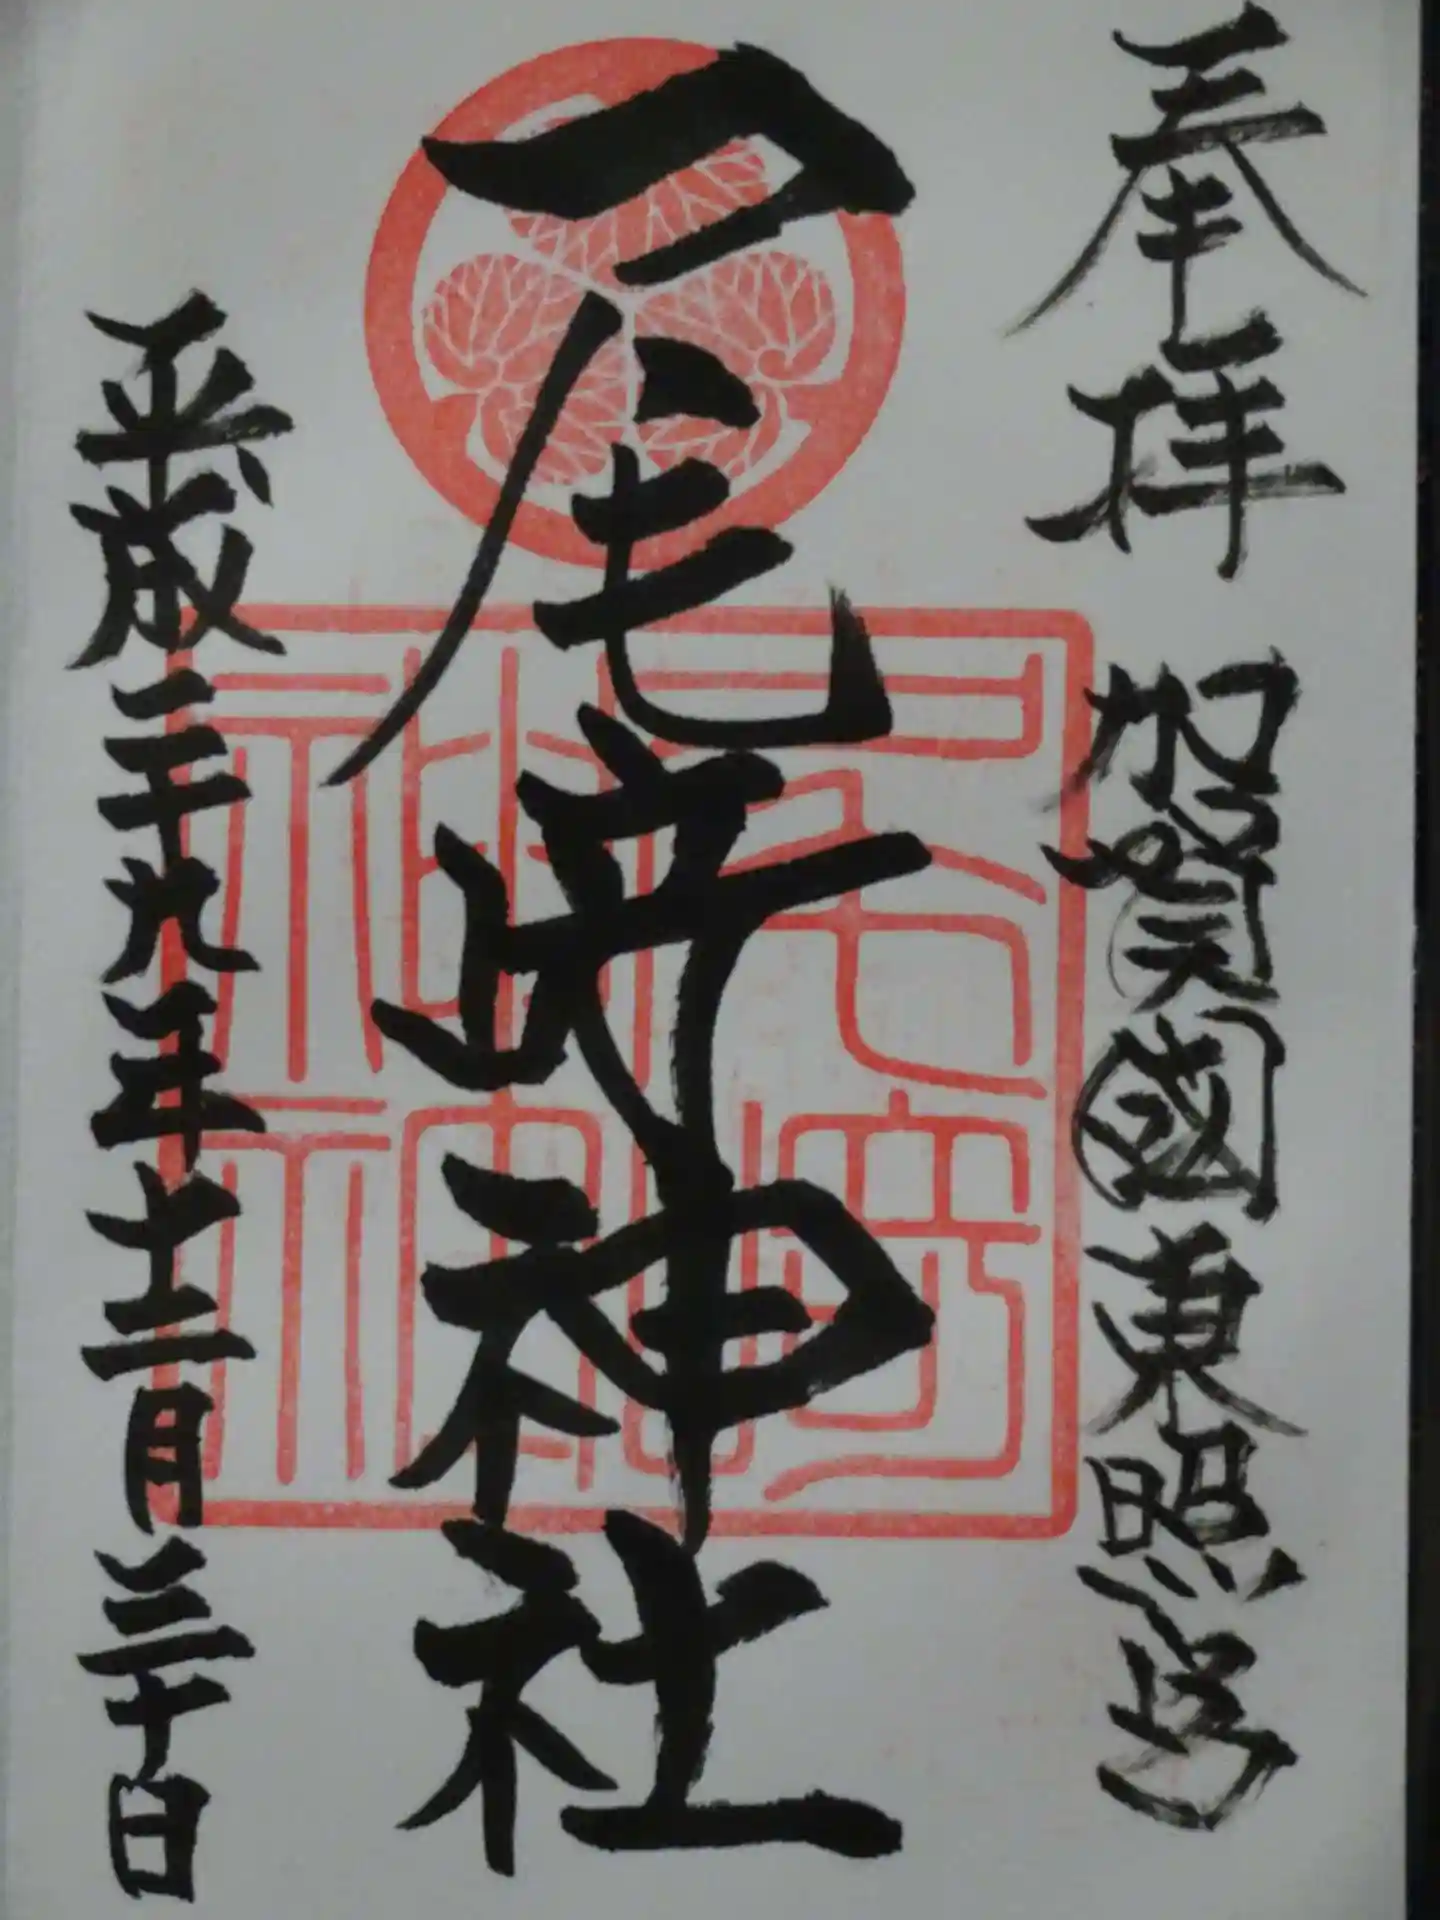 奉拝 加賀國東照宮
尾﨑神社
平成二十九年十二月三十日
尾﨑神社